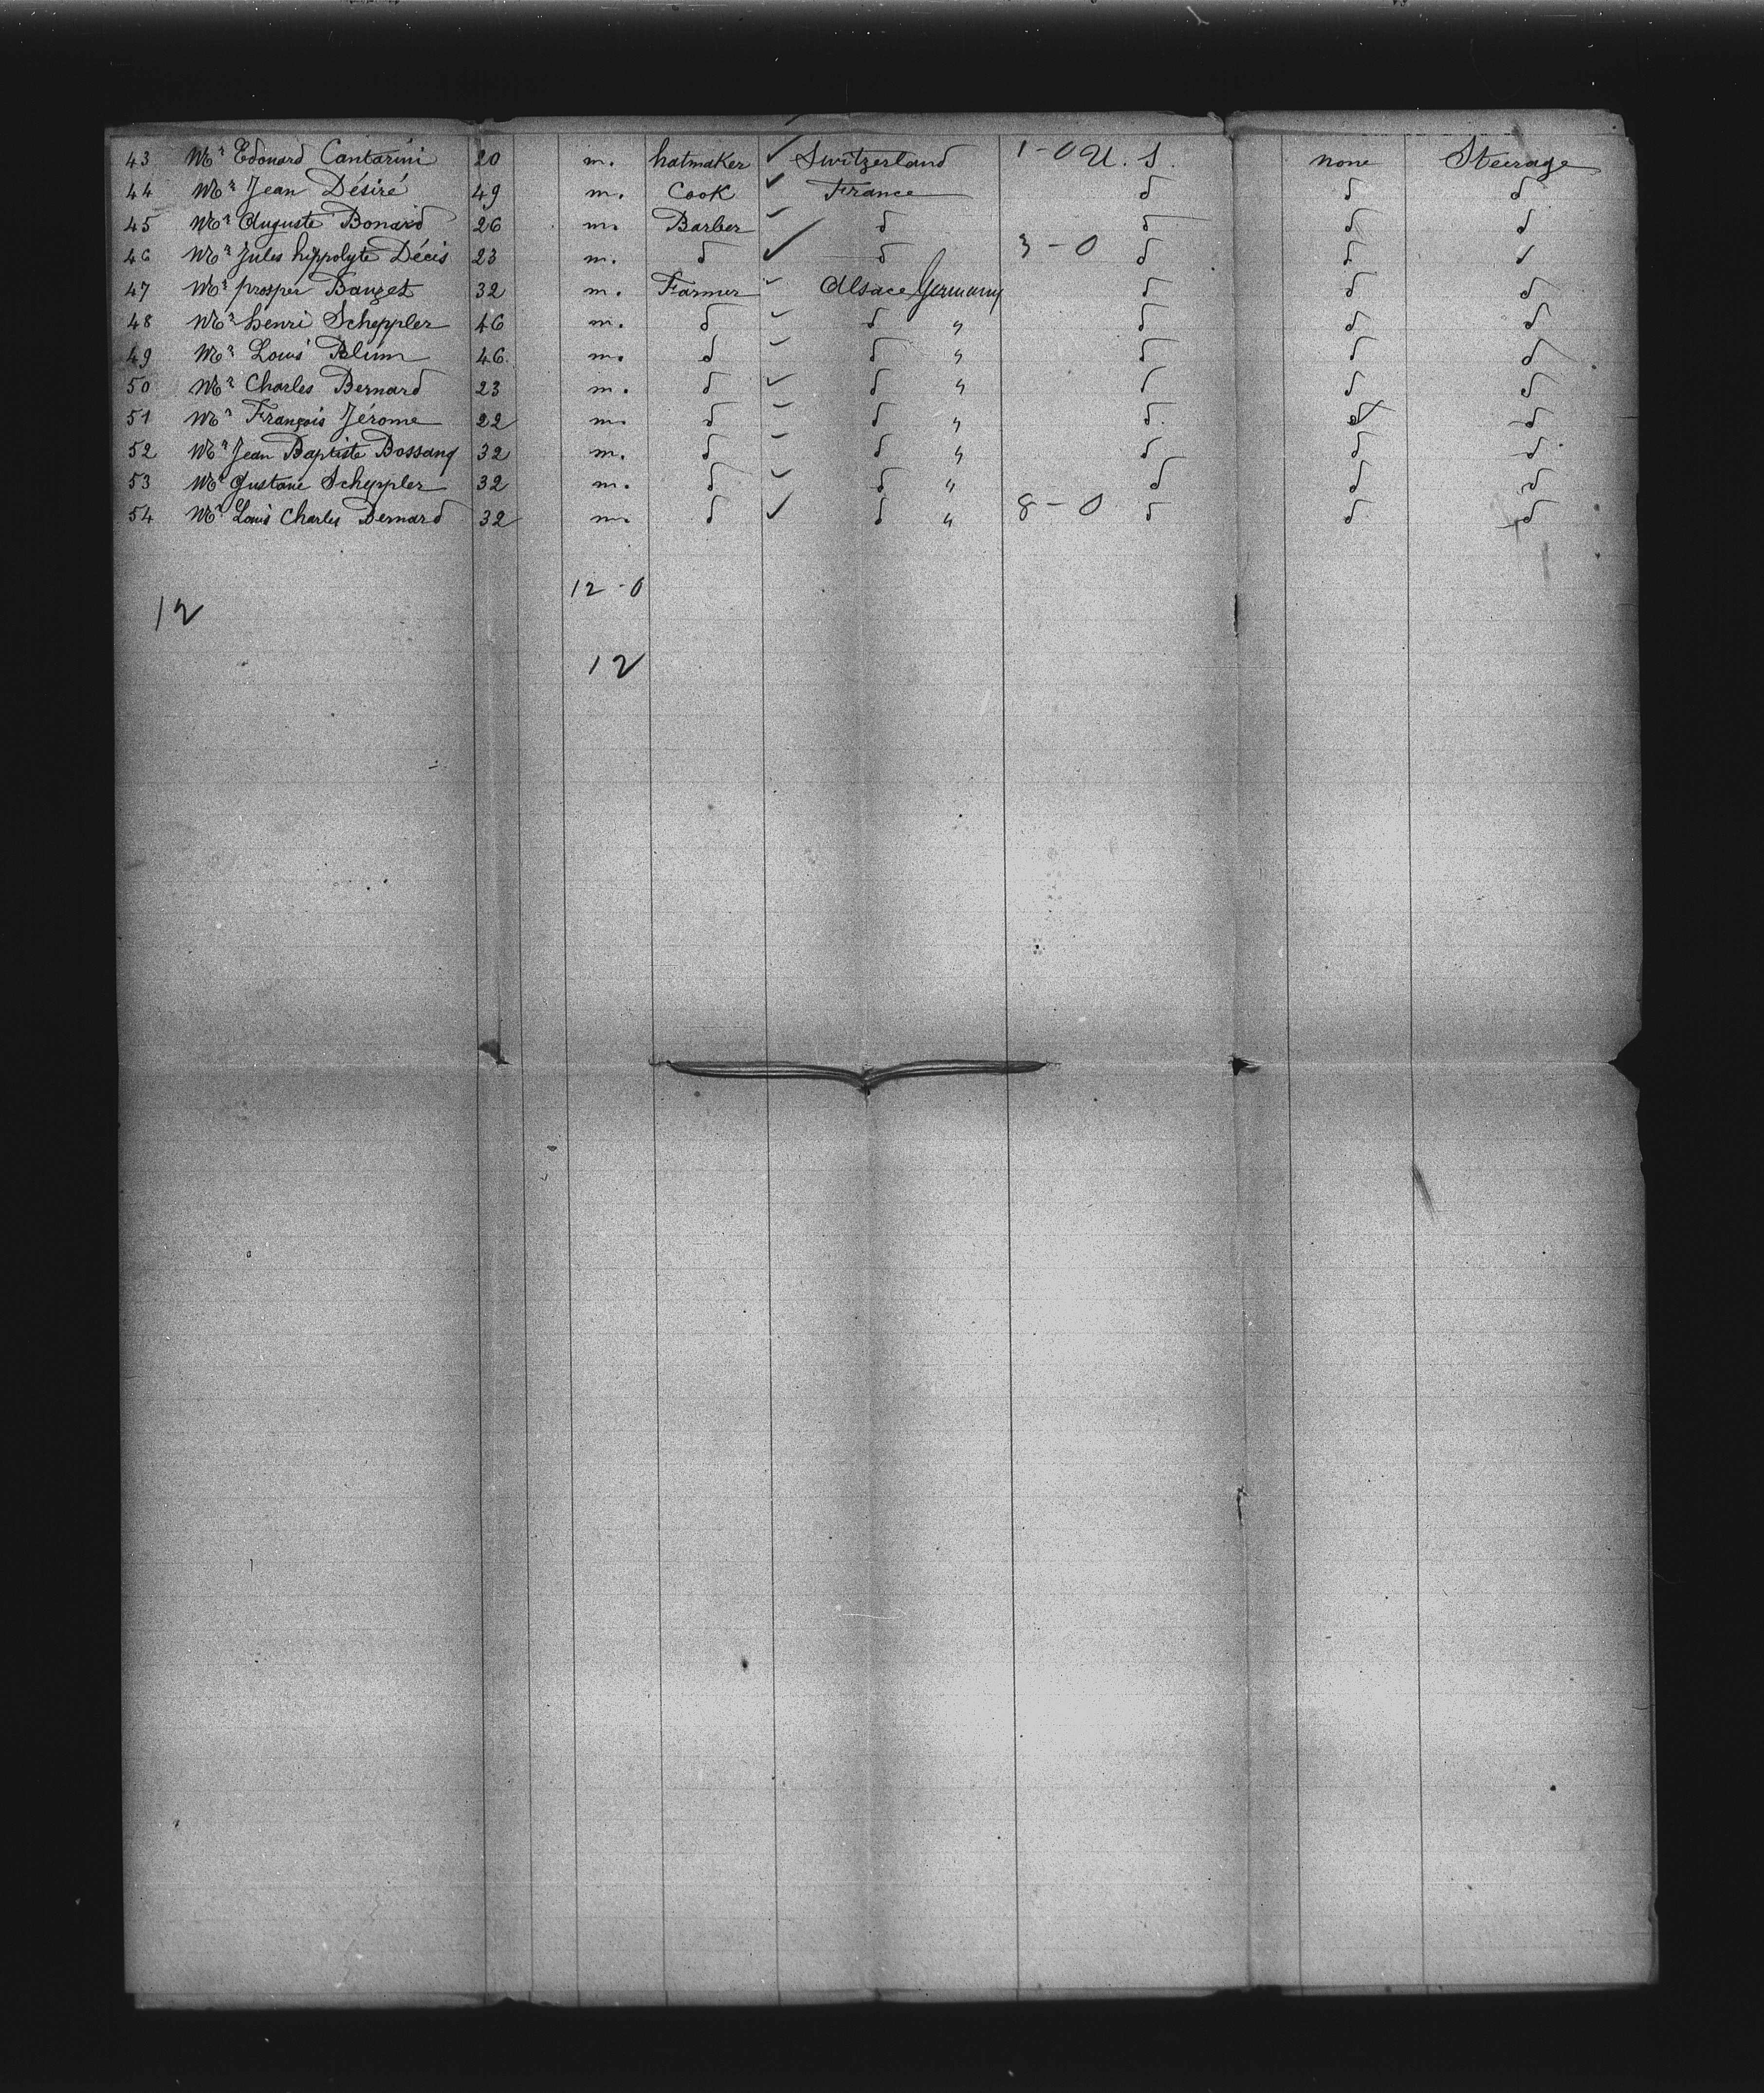 43 Mr Edouard Cantarini 20 m. hatmaker ✓ Switzerland 1-0 U. S. none Steerage
44 Mr Jean Désiré 49 m. Cook ✓ France d d d
45 Mr Auguste Bonard 26 m. Barber ✓ d d d d
46 Mr Jules hippolyte Décis 23 m. d ✓ d 3-0 d d d
47 Mr prosper Bauzet 32 m. Farmer ✓ Alsace Germany d d d
48 Mr henri Scheppler 46 m. d ✓ d " d d d
49 Mr Louis Blum 46 m. d ✓ d " d d d
50 Mr Charles Bernard 23 m. d ✓ d " d d d
51 Mr François Jérome 22 m. d ✓ d " d. d d
52 Mr Jean Baptiste Bossang 32 m. d ✓ d " d d d.
53 Mr Gustave Scheppler 32 m. d ✓ d " d d d
54 Mr Louis Charles Bernard 32 m. d ✓ d " 8-0 d d d
12-0
12
12